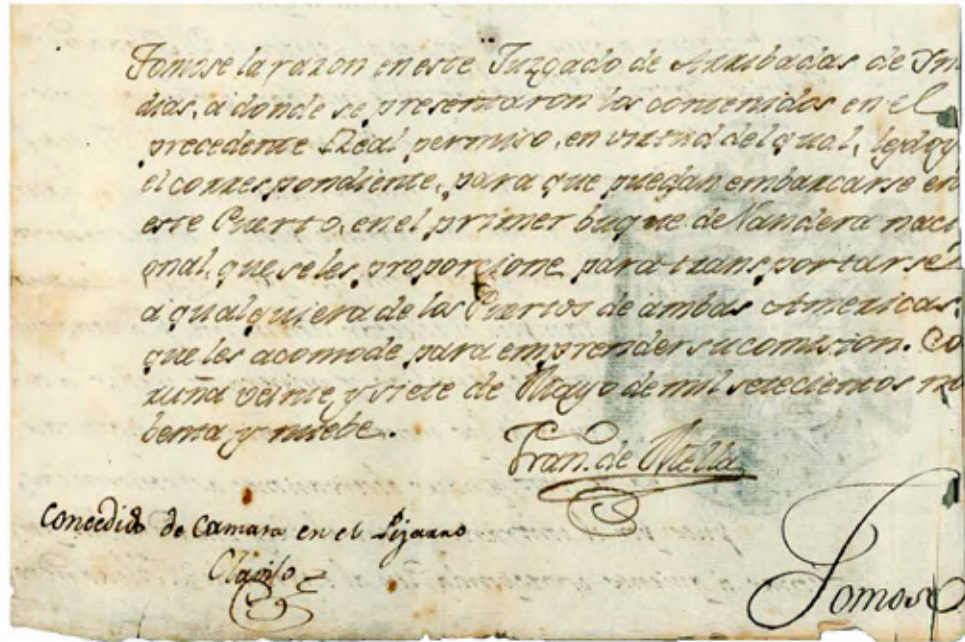 Tomose la razon en este Juzgado de Arribadas de In
dias, a donde se presentaron los contenidos en el
precedente Real permiso, en virtud del qual, les doy
el correspondiente, para que puedan embarcarse en
este Puerto, en el primer buque de Vandera naci
onal, que se les proporcione para transportarse
a qualquiera de los Puertos de ambas Americas,
que les acomode para emprender su comision. Co
ruña veinte y siete de Mayo de mil setecientos no
benta y nuebe.
Fran. de
Concedido de Camara en el Pizarro
Tomose